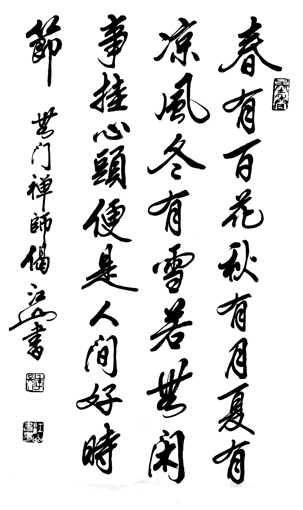 春有百花秋有月夏有
凉風冬有雪若無闲
事挂心頭便是人间好時
節
無门禅師偈 江山書